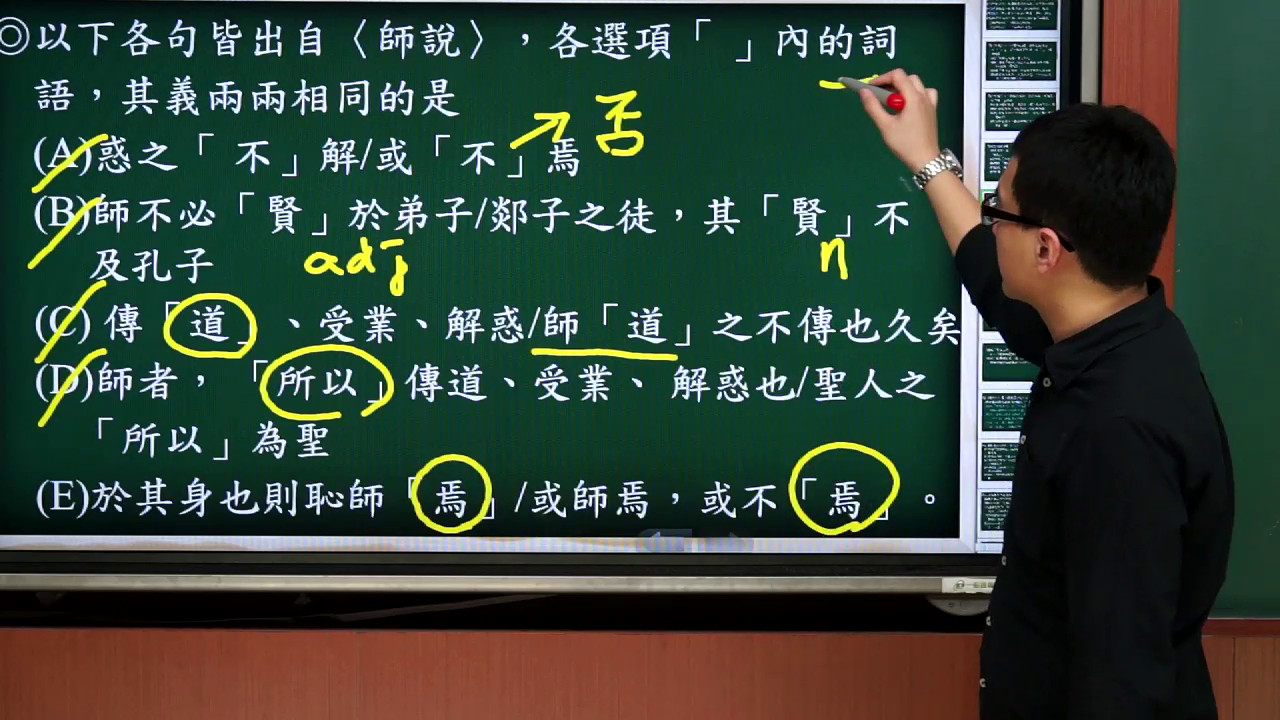 ◎以下各句皆出自〈師說〉，各選項「 」內的詞
語，其義兩兩相同的是
(A)惑之「不」解/或「不」焉 否
(B)師不必「賢」於弟子/郯子之徒，其「賢」不
adj n
及孔子
(C)傳「道」、受業、解惑/師「道」之不傳也久矣
(D)師者，「所以」傳道、受業、解惑也/聖人之
「所以」為聖
(E)於其身也則恥師「焉」/或師焉，或不「焉」。